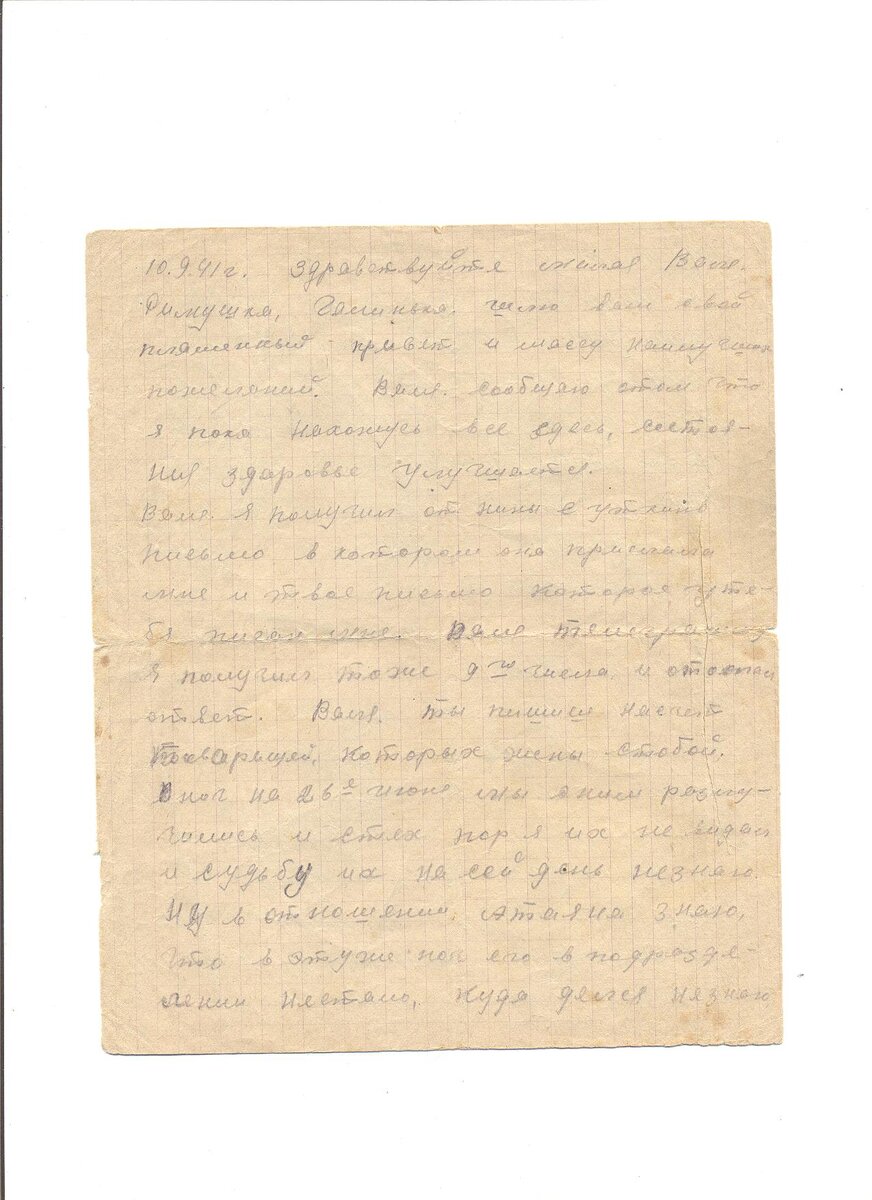 10.9.41 г. Здравствуйте милая Валя.
Римушка, Галинька. шлю вам свой
пламенный привет и массу наилучших
пожеланий. Валя. сообщаю отом что
я пока нахожусь все здесь, состоя-
ния здоровье улучшается.
Валя. Я получил от Нины
письмо в котором она прислала
мне и твое письмо которое
писал мне. Валя телеграмму
я получил тоже 9го числа и отослал
ответ. Валя. ты пишиш насчет
товарищей, которых жены стобой.
В ноч на 26е июне мы сними разлу-
чились и стех пор я их не видал
и судьбу их на сей день незнаю
Ну в отношении Атаяна знаю,
что в эту же ноч его в подразде-
лении нестало, куда делся незнаю